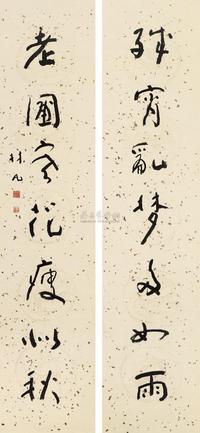 残宵乱梦多如雨
老圃寒花瘦似秋
林凡